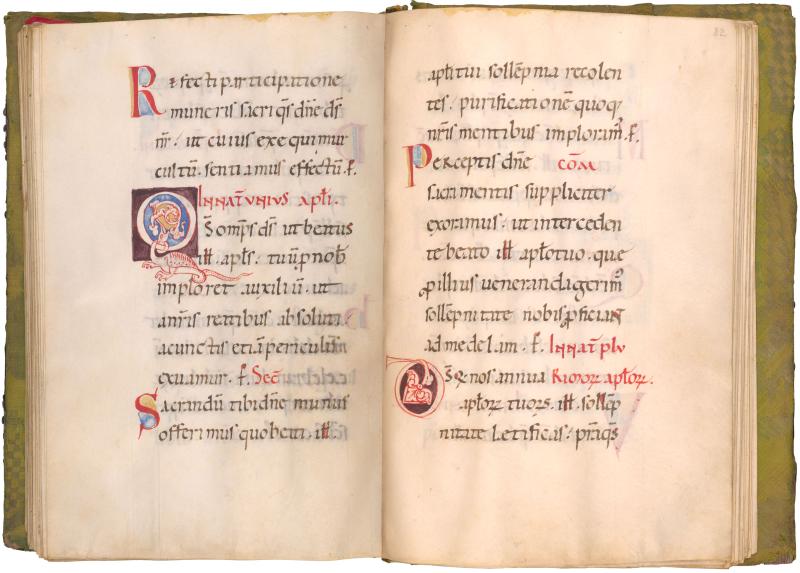 Refecti participatione
muneris sacri q̄s dn̄e ds̄
nr̄ . ut cuius exequimur
cultū . sentiamus effectū . ꝑ.
IN NAT̄ UNIUS apl̄i .
Qs̄ omp̄s ds̄ ut beatus
ill̄ . apl̄s . tuū ꝓ nob̄
imploret auxiliū . ut
anr̄is reatibus absoluti .
acunctis etiā periculis
exuamur . ꝑ. Sec̄
Sacrandū tibi dn̄e munus
offerimus quo beati . ill̄ .
82
apl̄i tui sollēpnia recolen
tes . purificationē quoq;
nr̄is mentibus imploram; . ꝑ.
Perceptis dn̄e COM̄
sacramentis suppliciter
exoramus . ut interceden
te beato ill̄ apl̄o tuo . que
ꝓ illius ueneranda gerim;
sollēpnitate nobis ꝓficiant
ad medelam . ꝑ. IN NAT̄ PLU
Ds̄ q; nos annua RIMOꝜ apl̄oꝝ .
apl̄oꝝ tuoꝝ . ill̄ . sollēp
nitate letificas . p̄ . q̄s